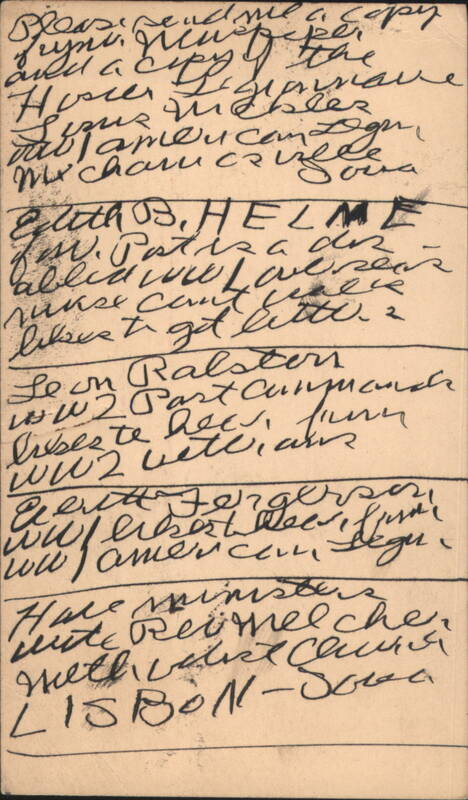 Please send me a copy
of your Newspaper
and a copy of the
Hosier Legionnaire
Louis Meisler
WW1 american Legn,
Mechanicsville
Iowa
Edith B. HELME
of our Post is a dis-
abled WW1 overseas
nurse cant walk
likes to get letters
Leon Ralston
WW2 Post Commands
likes to hear from
WW2 vetterans
Everett Fergerson,
WW1 likes to hear from
WW1 american Legn.
Have ministers
write Rev Melcher
Methodist Church
LISBON - Iowa